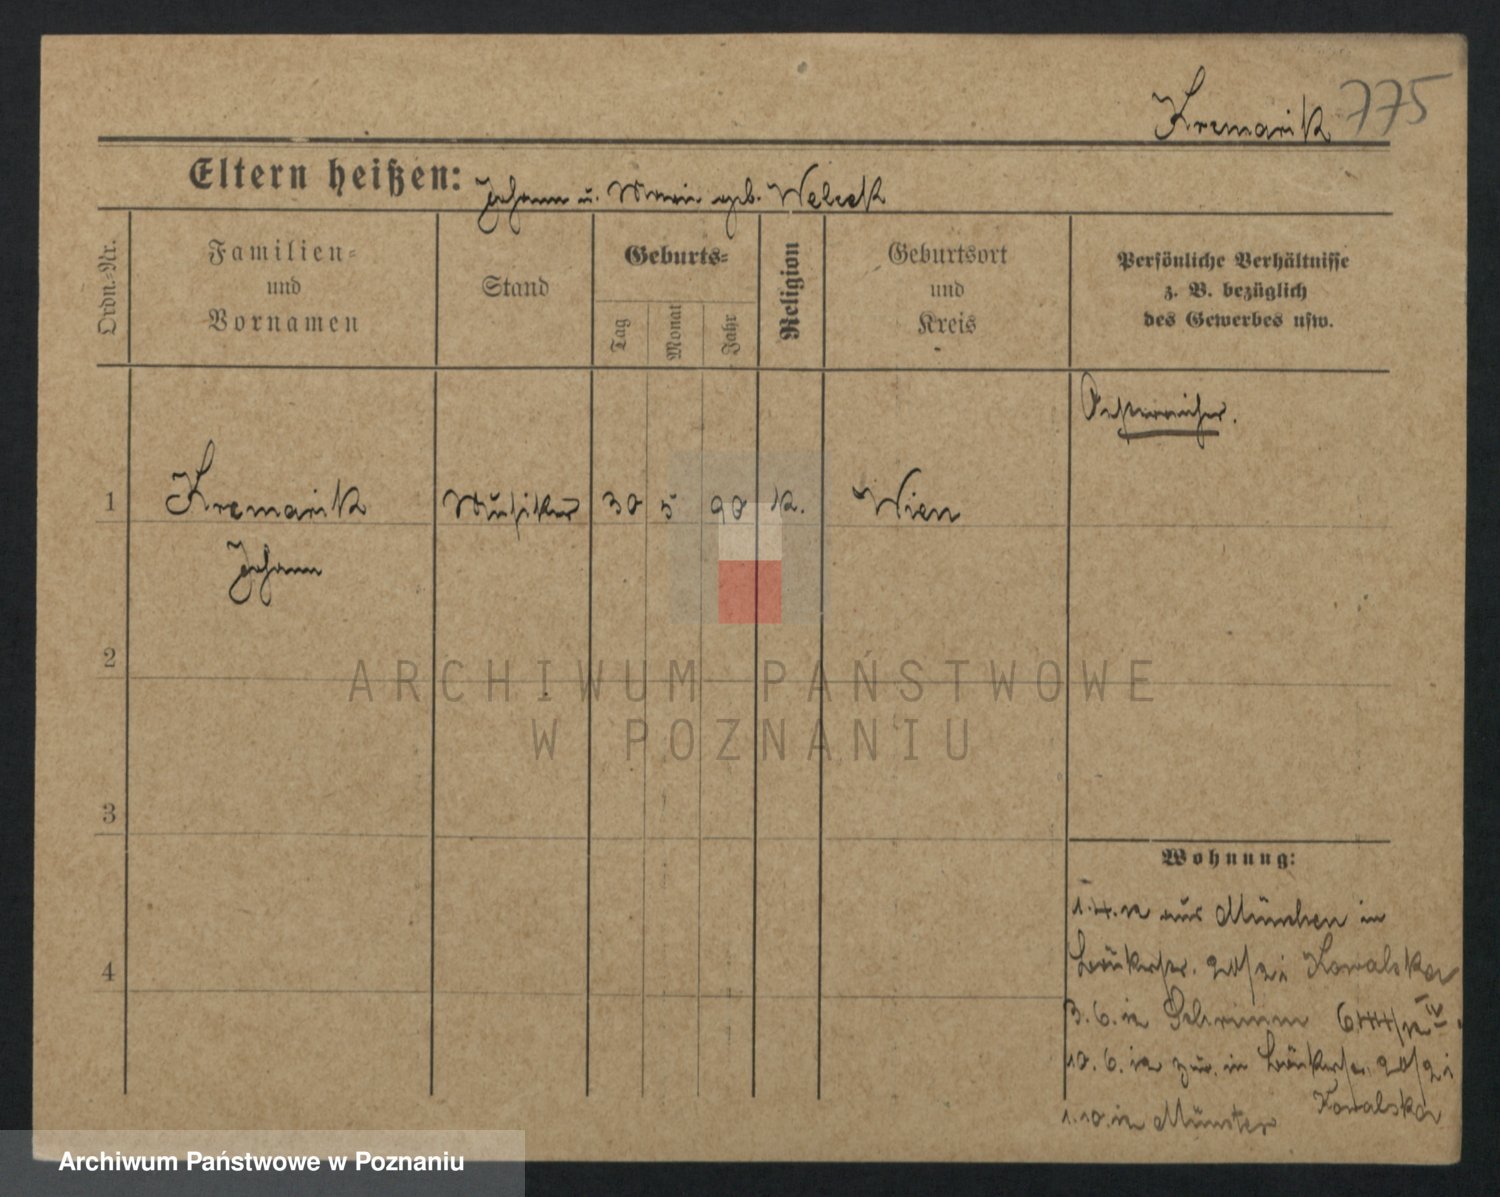 Kremarik 775
Eltern heißen: Johann u. Marie geb. Welcek
Ordn.-Nr.
Familien-
und
Vornamen
Stand
Geburts-
Tag
Monat
Jahr
Religion
Geburtsort
und
Kreis
Persönliche Verhältnisse
z. B. bezüglich
des Gewerbes usw.
Oesterreicher.
1 Kremarik Musiker 30 5 90 k. Wien
Johann
2
3
4
Wohnung:
1.4.12 aus München in
Kowalska
3.6.12 Schrimm
10.6.12 zur. in
Kowalska
1.10.12 Münster
ARCHIWUM PAŃSTWOWE
W POZNANIU
Archiwum Państwowe w Poznaniu